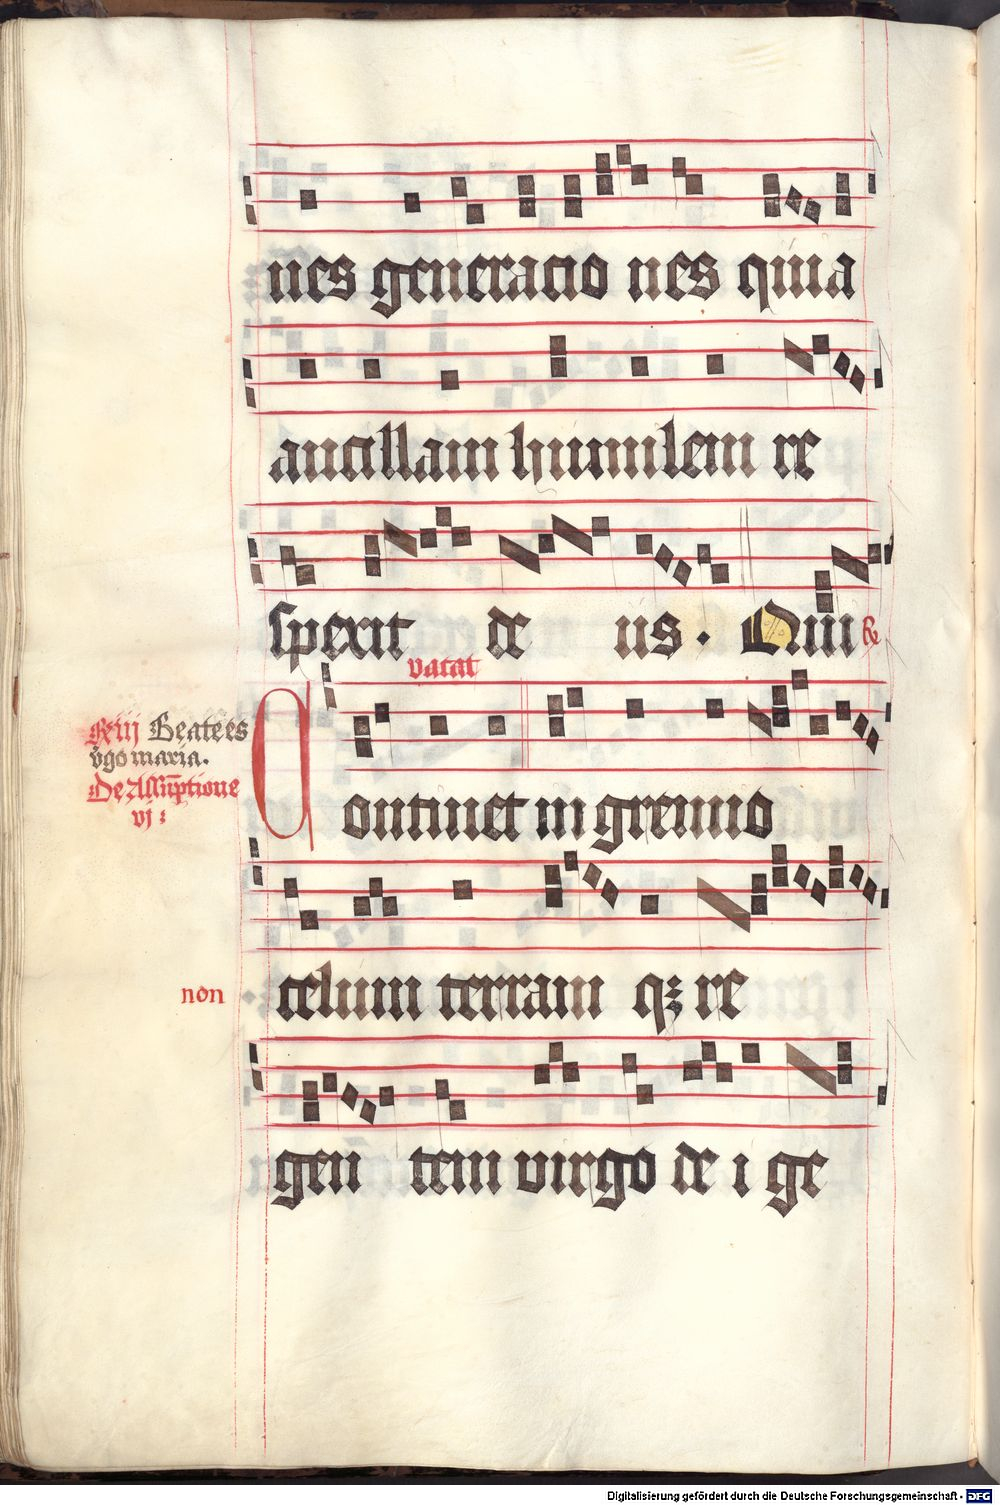 nes generatio nes quia
ancillam humilem re
spexit de us. Om̅
vacat
R iij Beata es
v̊go maria.
De Assu̅ptione
vj:
Continet in gremio
non
celum terram qꝫ re
gen tem virgo de i ge
Digitalisierung gefördert durch die Deutsche Forschungsgemeinschaft - DFG